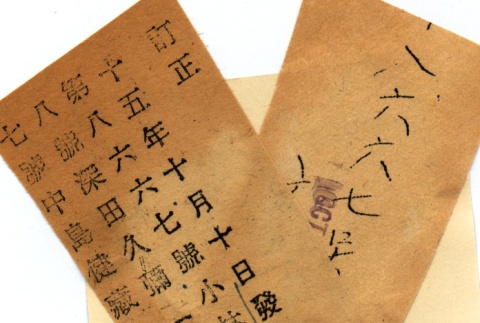 訂正
十五年十月十日發
第八六六七號小林
八號深田久彌
七號中島健藏
八六六七
六